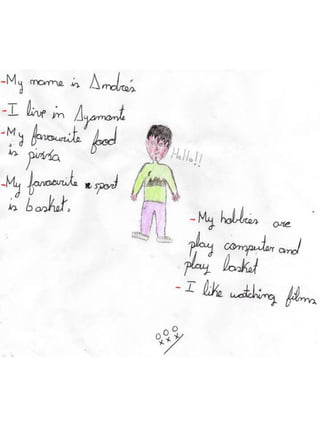 -My name is Andrés
-I live in Ayamonte
-My favourite food
is pizza
-My favourite sport
is basket.
Hello!!
-My hobbies are
play computer and
play basket
-I like watching films
ooo
xxx